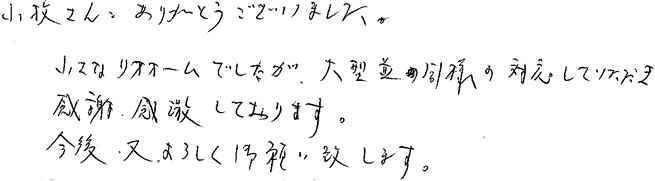 小牧さん、ありがとうございました。
小さなリフォームでしたが、大型並の同様の対応していただき
感謝、感激しております。
今後、又、よろしく御願い致します。